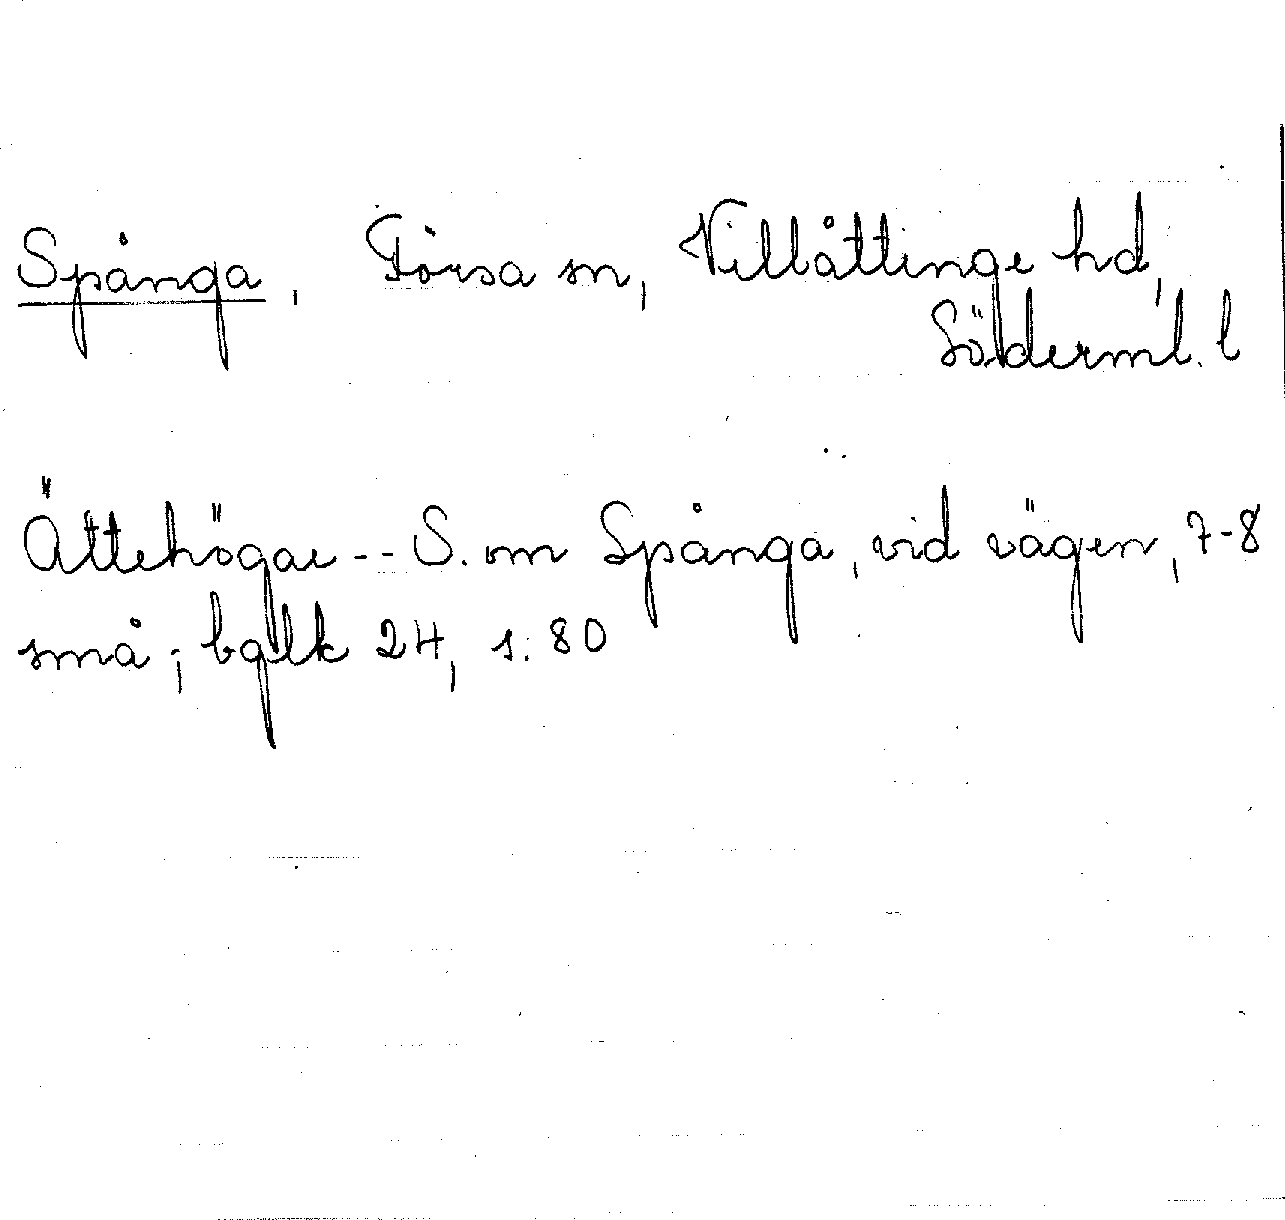 Spånga, Forsa sn, Villåttinge hd,
Söderml. l
Ättehögar -- S. om Spånga, vid vägen, 7-8
små; bglk 24, s. 80